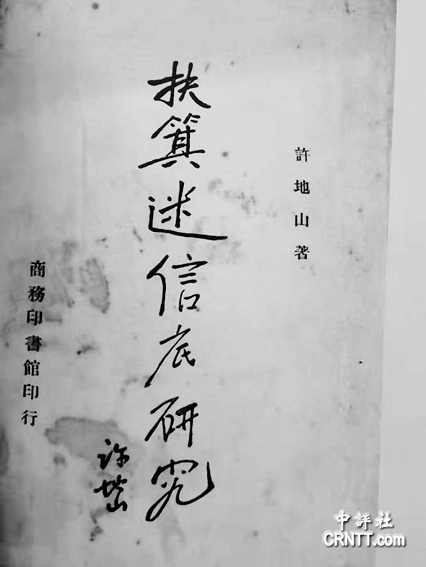 許地山著
扶箕迷信底研究
許地山
商務印書館印行
中評社
CRNTT.com